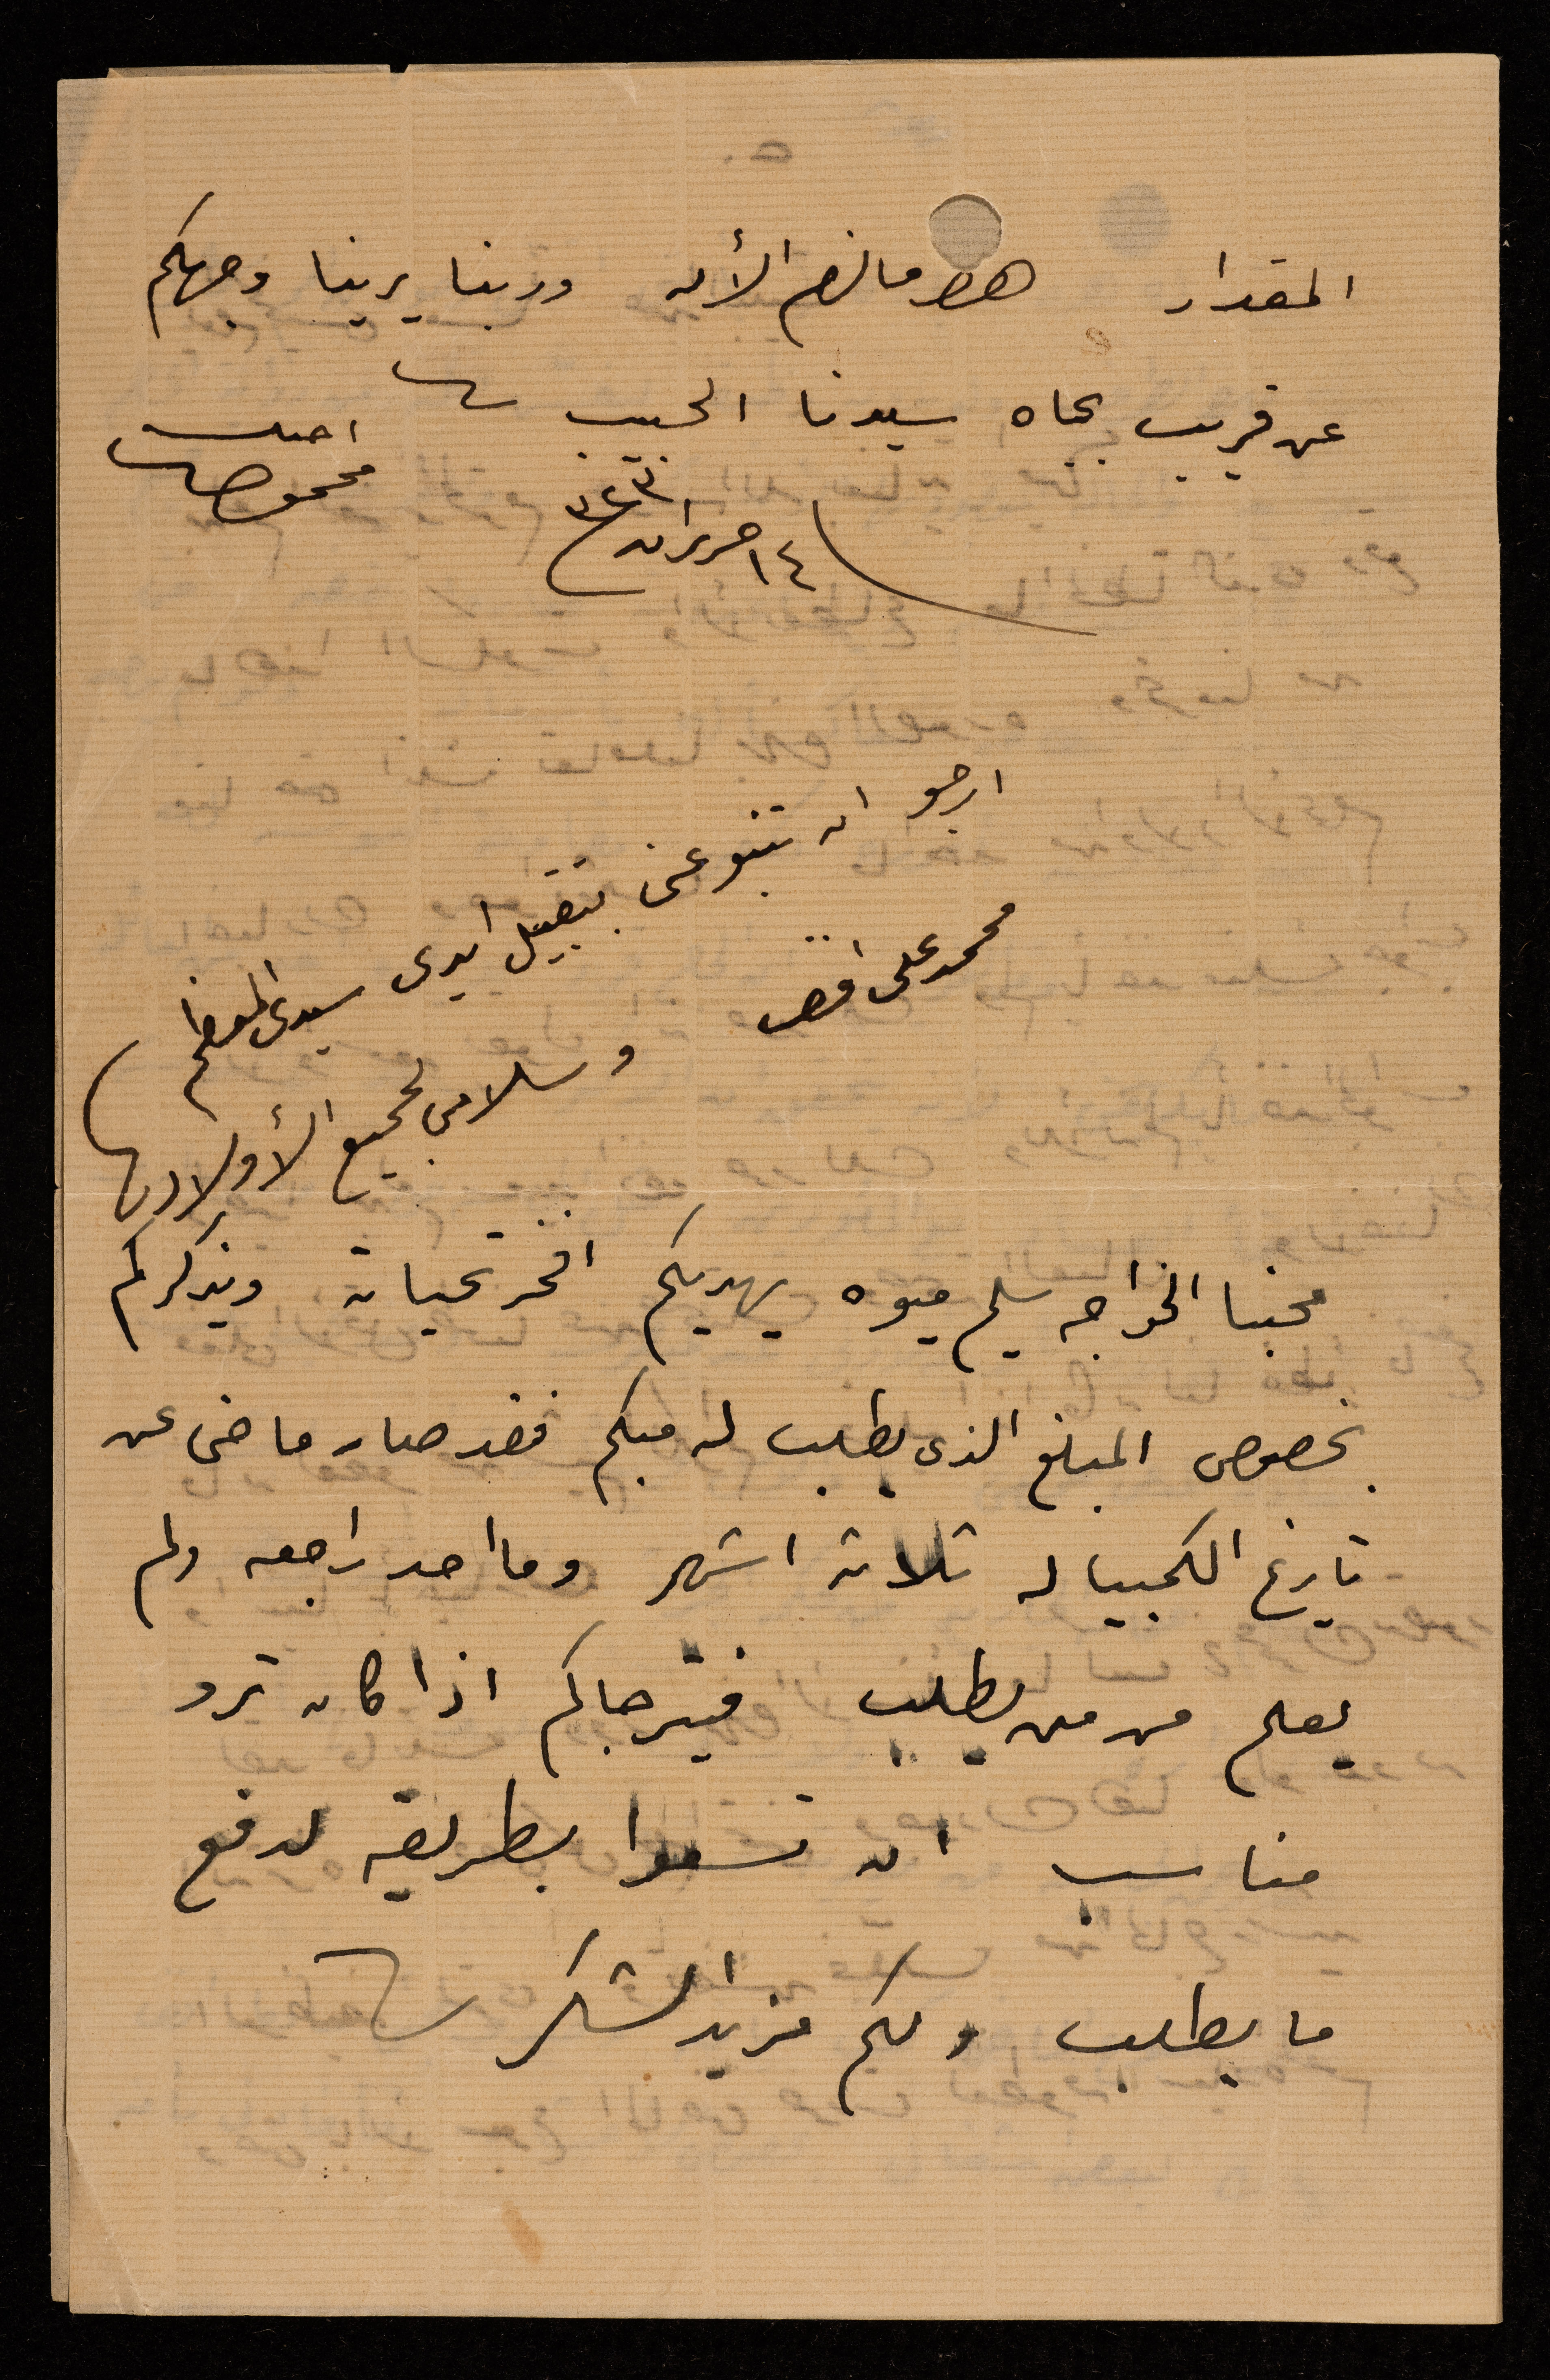 المقدار هذا ما لزم الأن وربنا يرينا وجهكم
عن قريب بجاه سيدنا الحبيب
١٤ حزيران ٣٢٣
ارجو ان تنبو عني بتقبيل ايدي سيدي المعظم
محمد علي افندي
وسلامي لجميع الأولاد
محبنا الخواجه سليم ميوه يهديكم افخر تحياته ويذكركم
بخصوص المبلغ الذي يطلب له منكم فقد صار ماضي عن
تاريخ الكمبياله ثلاثة اشهر وما احد راجعه ولم
يعلم من من يطلب فيترجاكم اذا كان ترو
مناسب ان تسعوا بطريقه لدفع
ما يطلب ولكم مزيد الشكر